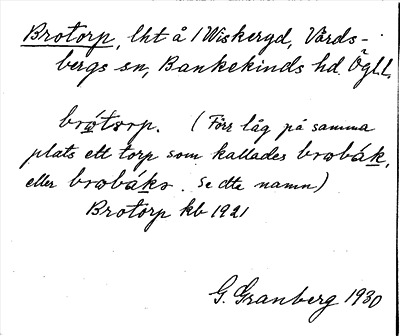 Brotorp, lht å 1 Wiskeryd, Vårds-
bergs sn, Bankekinds hd. Ögl.
brótorp. (Förr låg på samma
plats ett torp som kallades brobák,
eller brobáks. Se dta namn)
Brotorp kb 1921
G. Granberg 1930